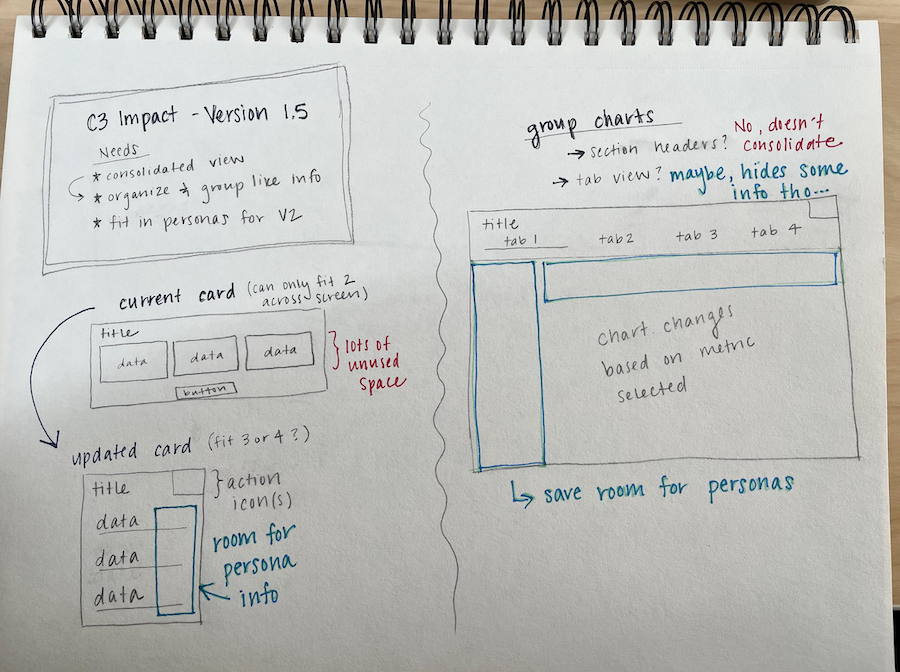 C3 Impact - Version 1.5
Needs
* consolidated view
* organize & group like info
* fit in personas for V2
current card (can only fit 2
across screen)
title
data data data
button
lots of
unused
space
updated card (fit 3 or 4?)
title
data
data
data
action
icon(s)
room for
persona
info
group charts
→ section headers? No, doesn't
consolidate
→ tab view? maybe, hides some
info tho...
title
tab 1 tab2 tab 3 tab 4
chart changes
based on metric
selected
save room for personas